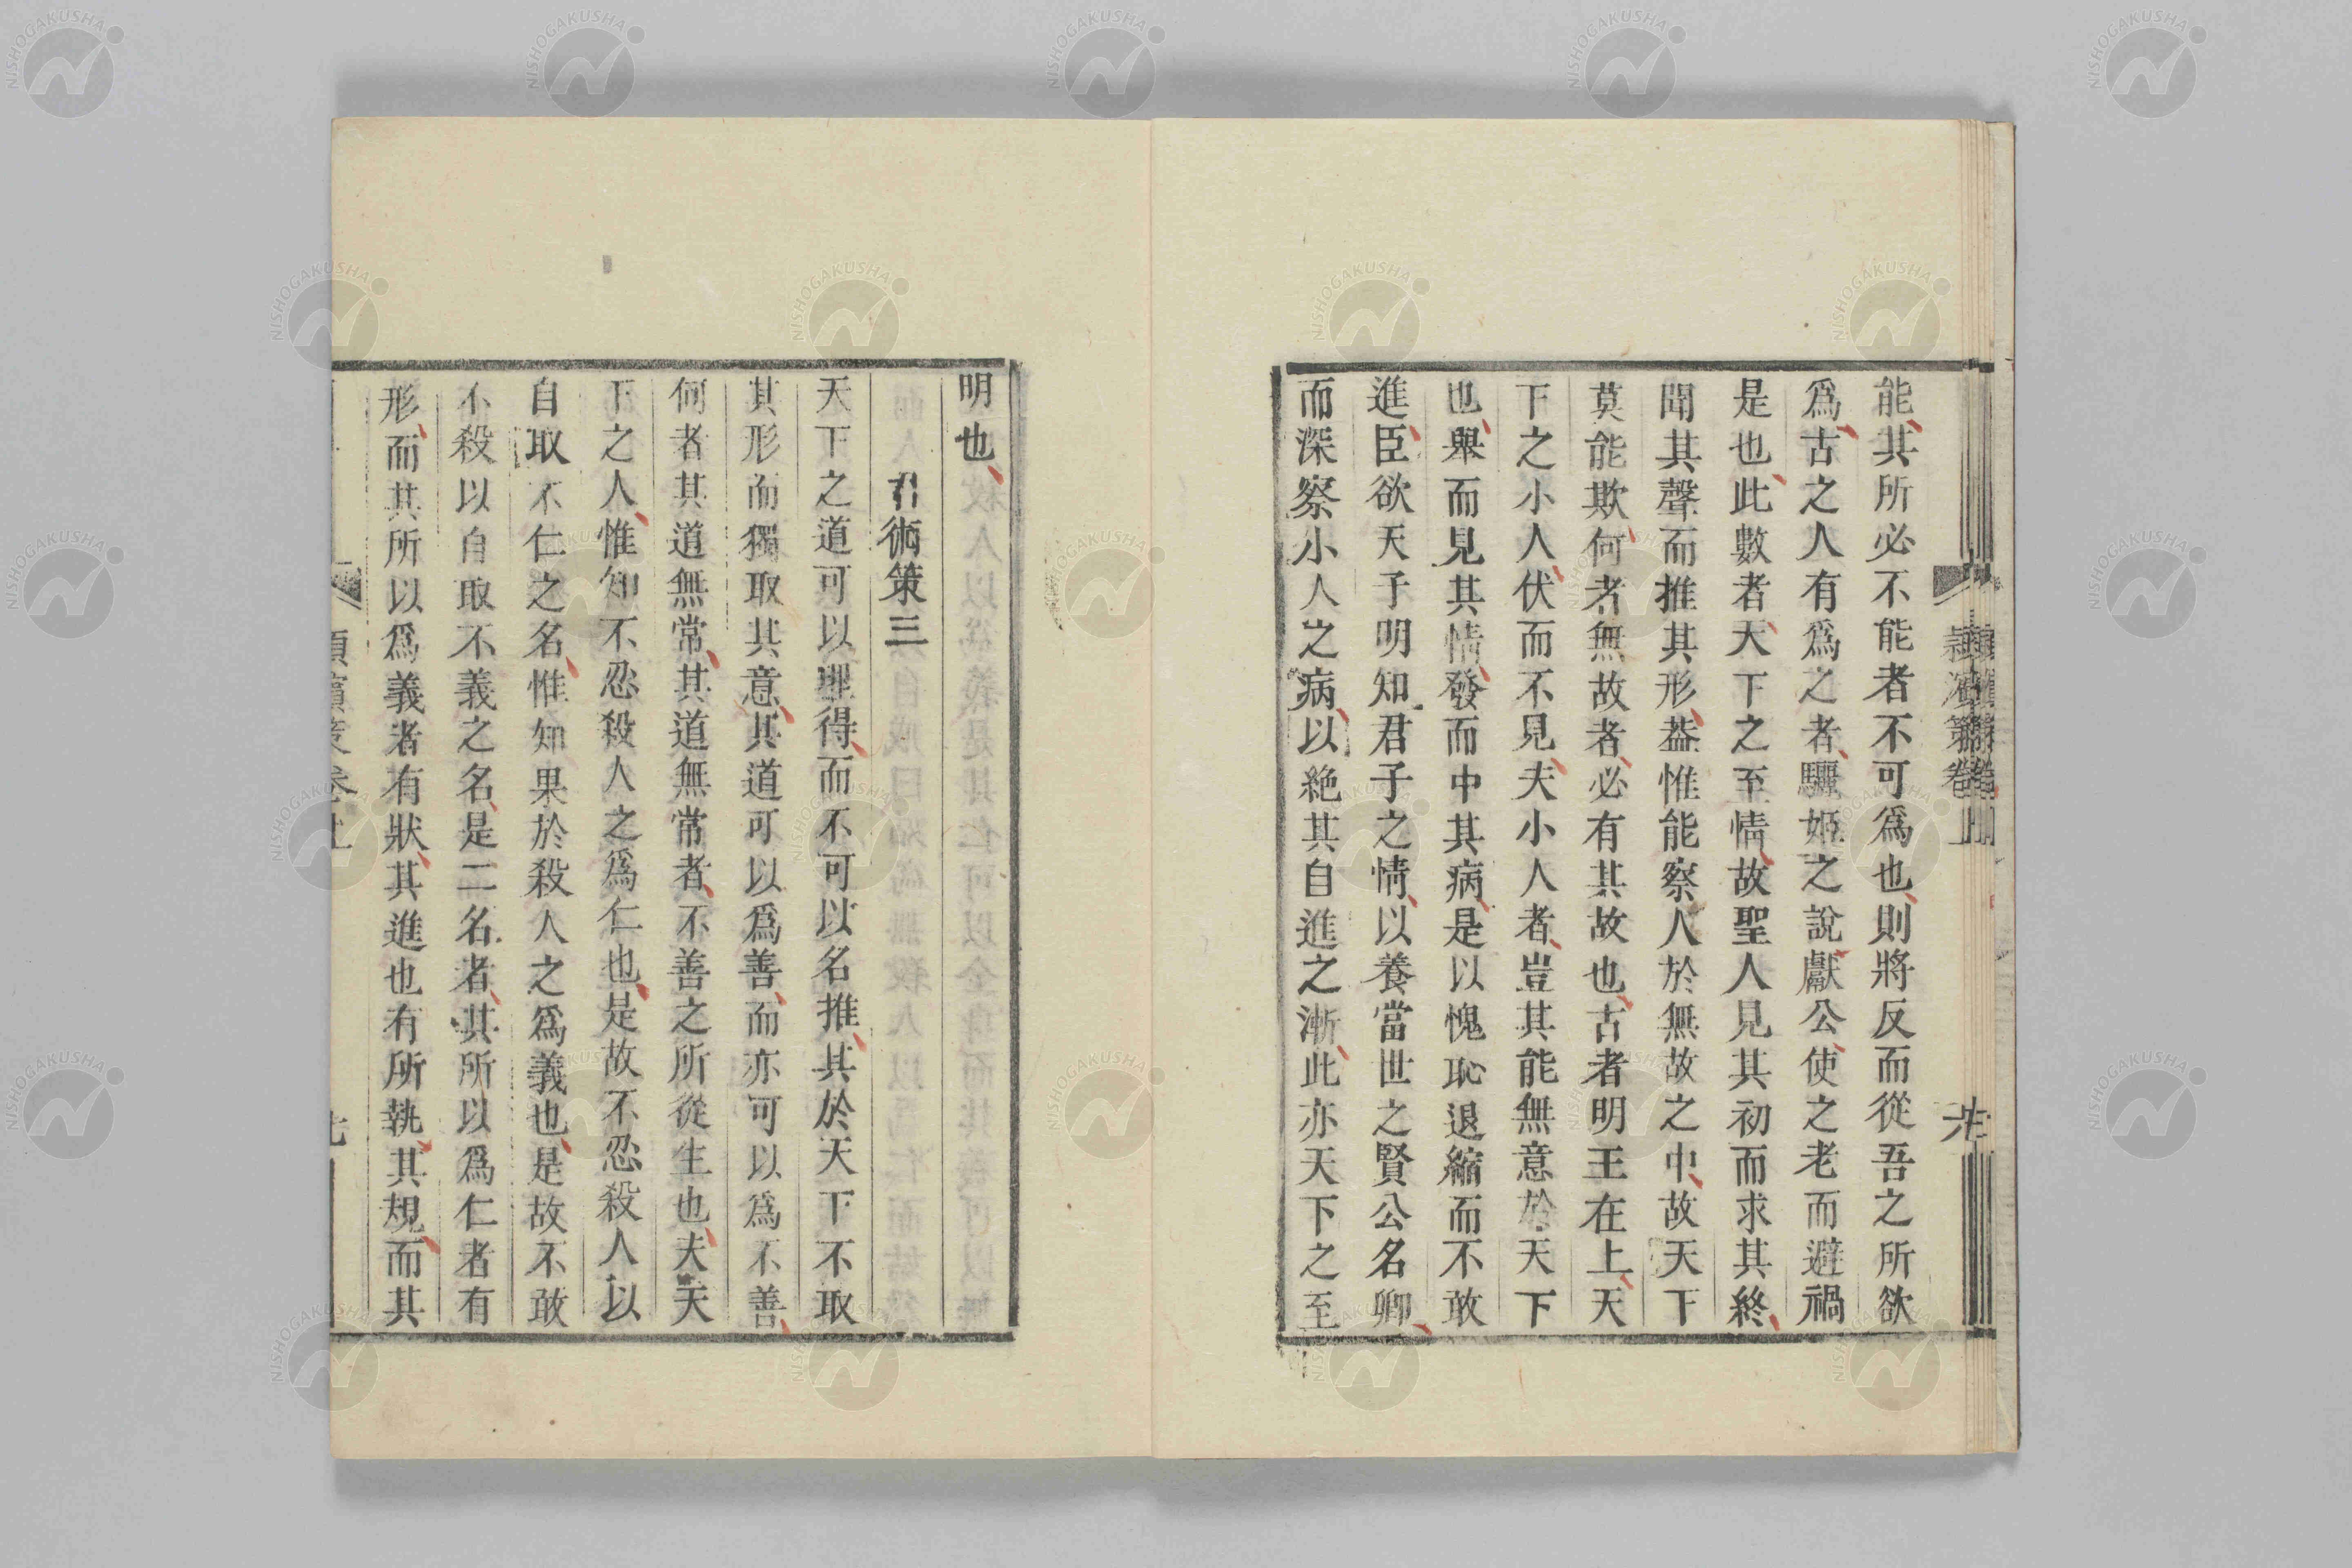 能其所必不能者不可爲也則將反而從吾之所欲
爲古之人有爲之者驪姬之說獻公使之老而避禍
是也此數者天下之至情故聖人見其初而求其終
聞其聲而推其形葢惟能察人於無故之中故天下
莫能欺何者無故者必有其故也古者明王在上天
下之小人伏而不見夫小人者豈其能無意於天下
也舉而見其情發而中其病是以愧恥退縮而不敢
進臣欲天子明知君子之情以養當世之賢公名卿
而深察小人之病以絶其自進之漸此亦天下之至
明也
君術策三
天下之道可以理得而不可以名推其於天下不取
其形而獨取其意其道可以爲善而亦可以爲不善
何者其道無常其道無常者不善之所從生也夫天
下之人惟知不忍殺人之爲仁也是故不忍殺人以
自取不仁之名惟知果於殺人之爲義也是故不敢
不殺以自取不義之名是二名者其所以爲仁者有
形而其所以爲義者有狀其進也有所執其規而其
NISHOGAKUSHA